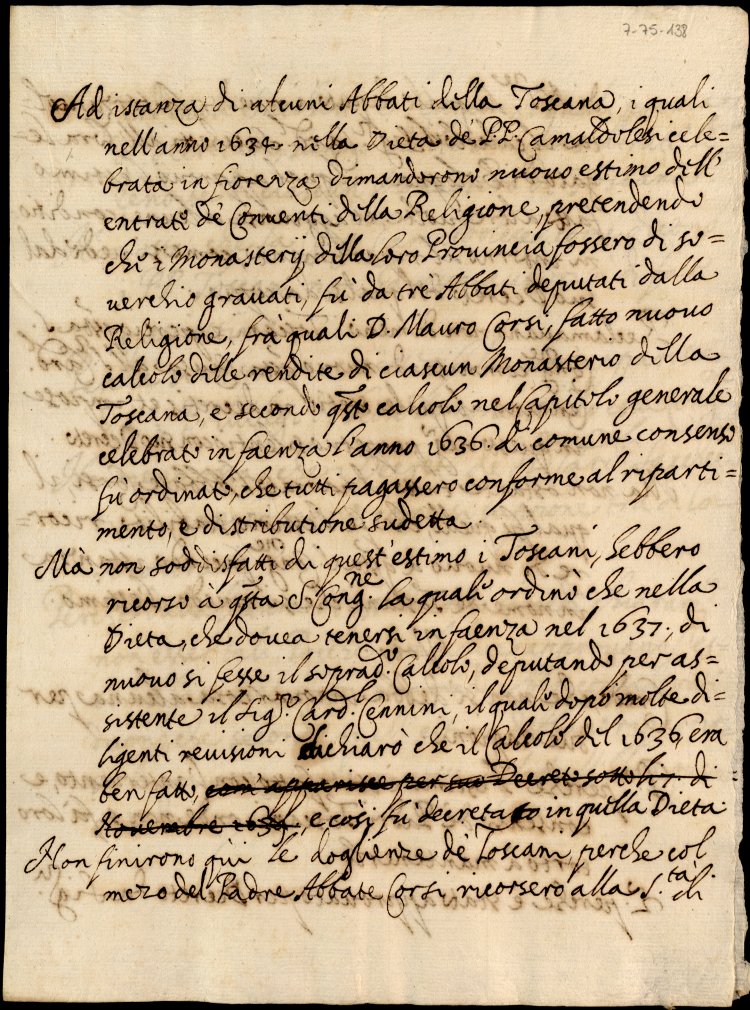 7-75-138
Ad istanza di alcuni Abbati della Toscana, i quali
nell'anno 1634 nella Dieta de' P.P. Camaldolesi cele=
brata in fiorenza dimanderono nuovo estimo dell'
entrate de' Conventi della Religione, pretendendo
che i Monasterij della loro Provincia fossero di so=
verchio gravati, fù da trè Abbati deputati dalla
Religione, frà quali D. Mauro Corsi, fatto nuovo
calcolo delle rendite di ciascun Monasterio della
Toscana, e secondo qsto calcolo nel Capitolo generale
celebrato in faenza l'anno 1636. di comune consenso
fù ordinato, che tutti pagassero conforme al riparti=
mento, e distributione sudetta.
Mà non soddisfatti di quest'estimo i Toscani, hebbero
ricorso à qsta S. Congne. la quale ordinò che nella
Dieta, che dovea tenersi in faenza nel 1637., di
nuovo si fesse il soprado. Calcolo, deputando per as=
sistente il Sigr. Cardl. Cennini, il quale dopo molte di=
ligenti revisioni dichiarò che il Calcolo del 1636, era
ben fatto, com'apparisce per suo Decreto sotto li 7. di
Novembre 1639, e così fù decretato in quella Dieta.
Non finirono qui le doglienze de' Toscani, perche col
mezo del Padre Abbate Corsi ricorsero alla S.tà di